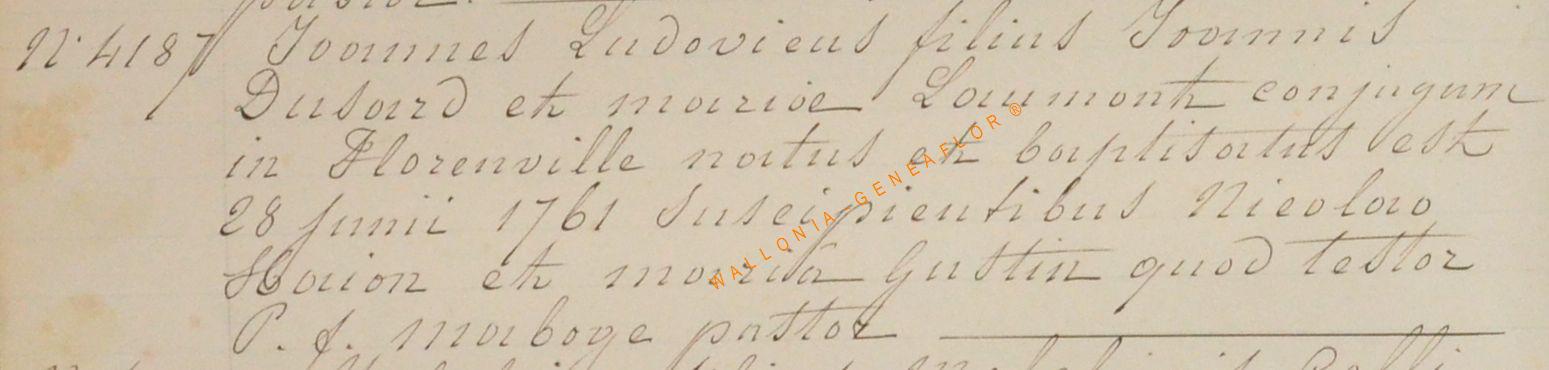 pastor.
N° 4187 Joannes Ludovicus filius Joannis
Dusard et mariæ Laumont conjugum
in Florenville natus et baptisatus est
28 junii 1761 Suscipientibus Nicolao
Haion et mariâ Gustin quod testor
P. J. Maboge pastor
WALLONIA-GENEAFLOR®